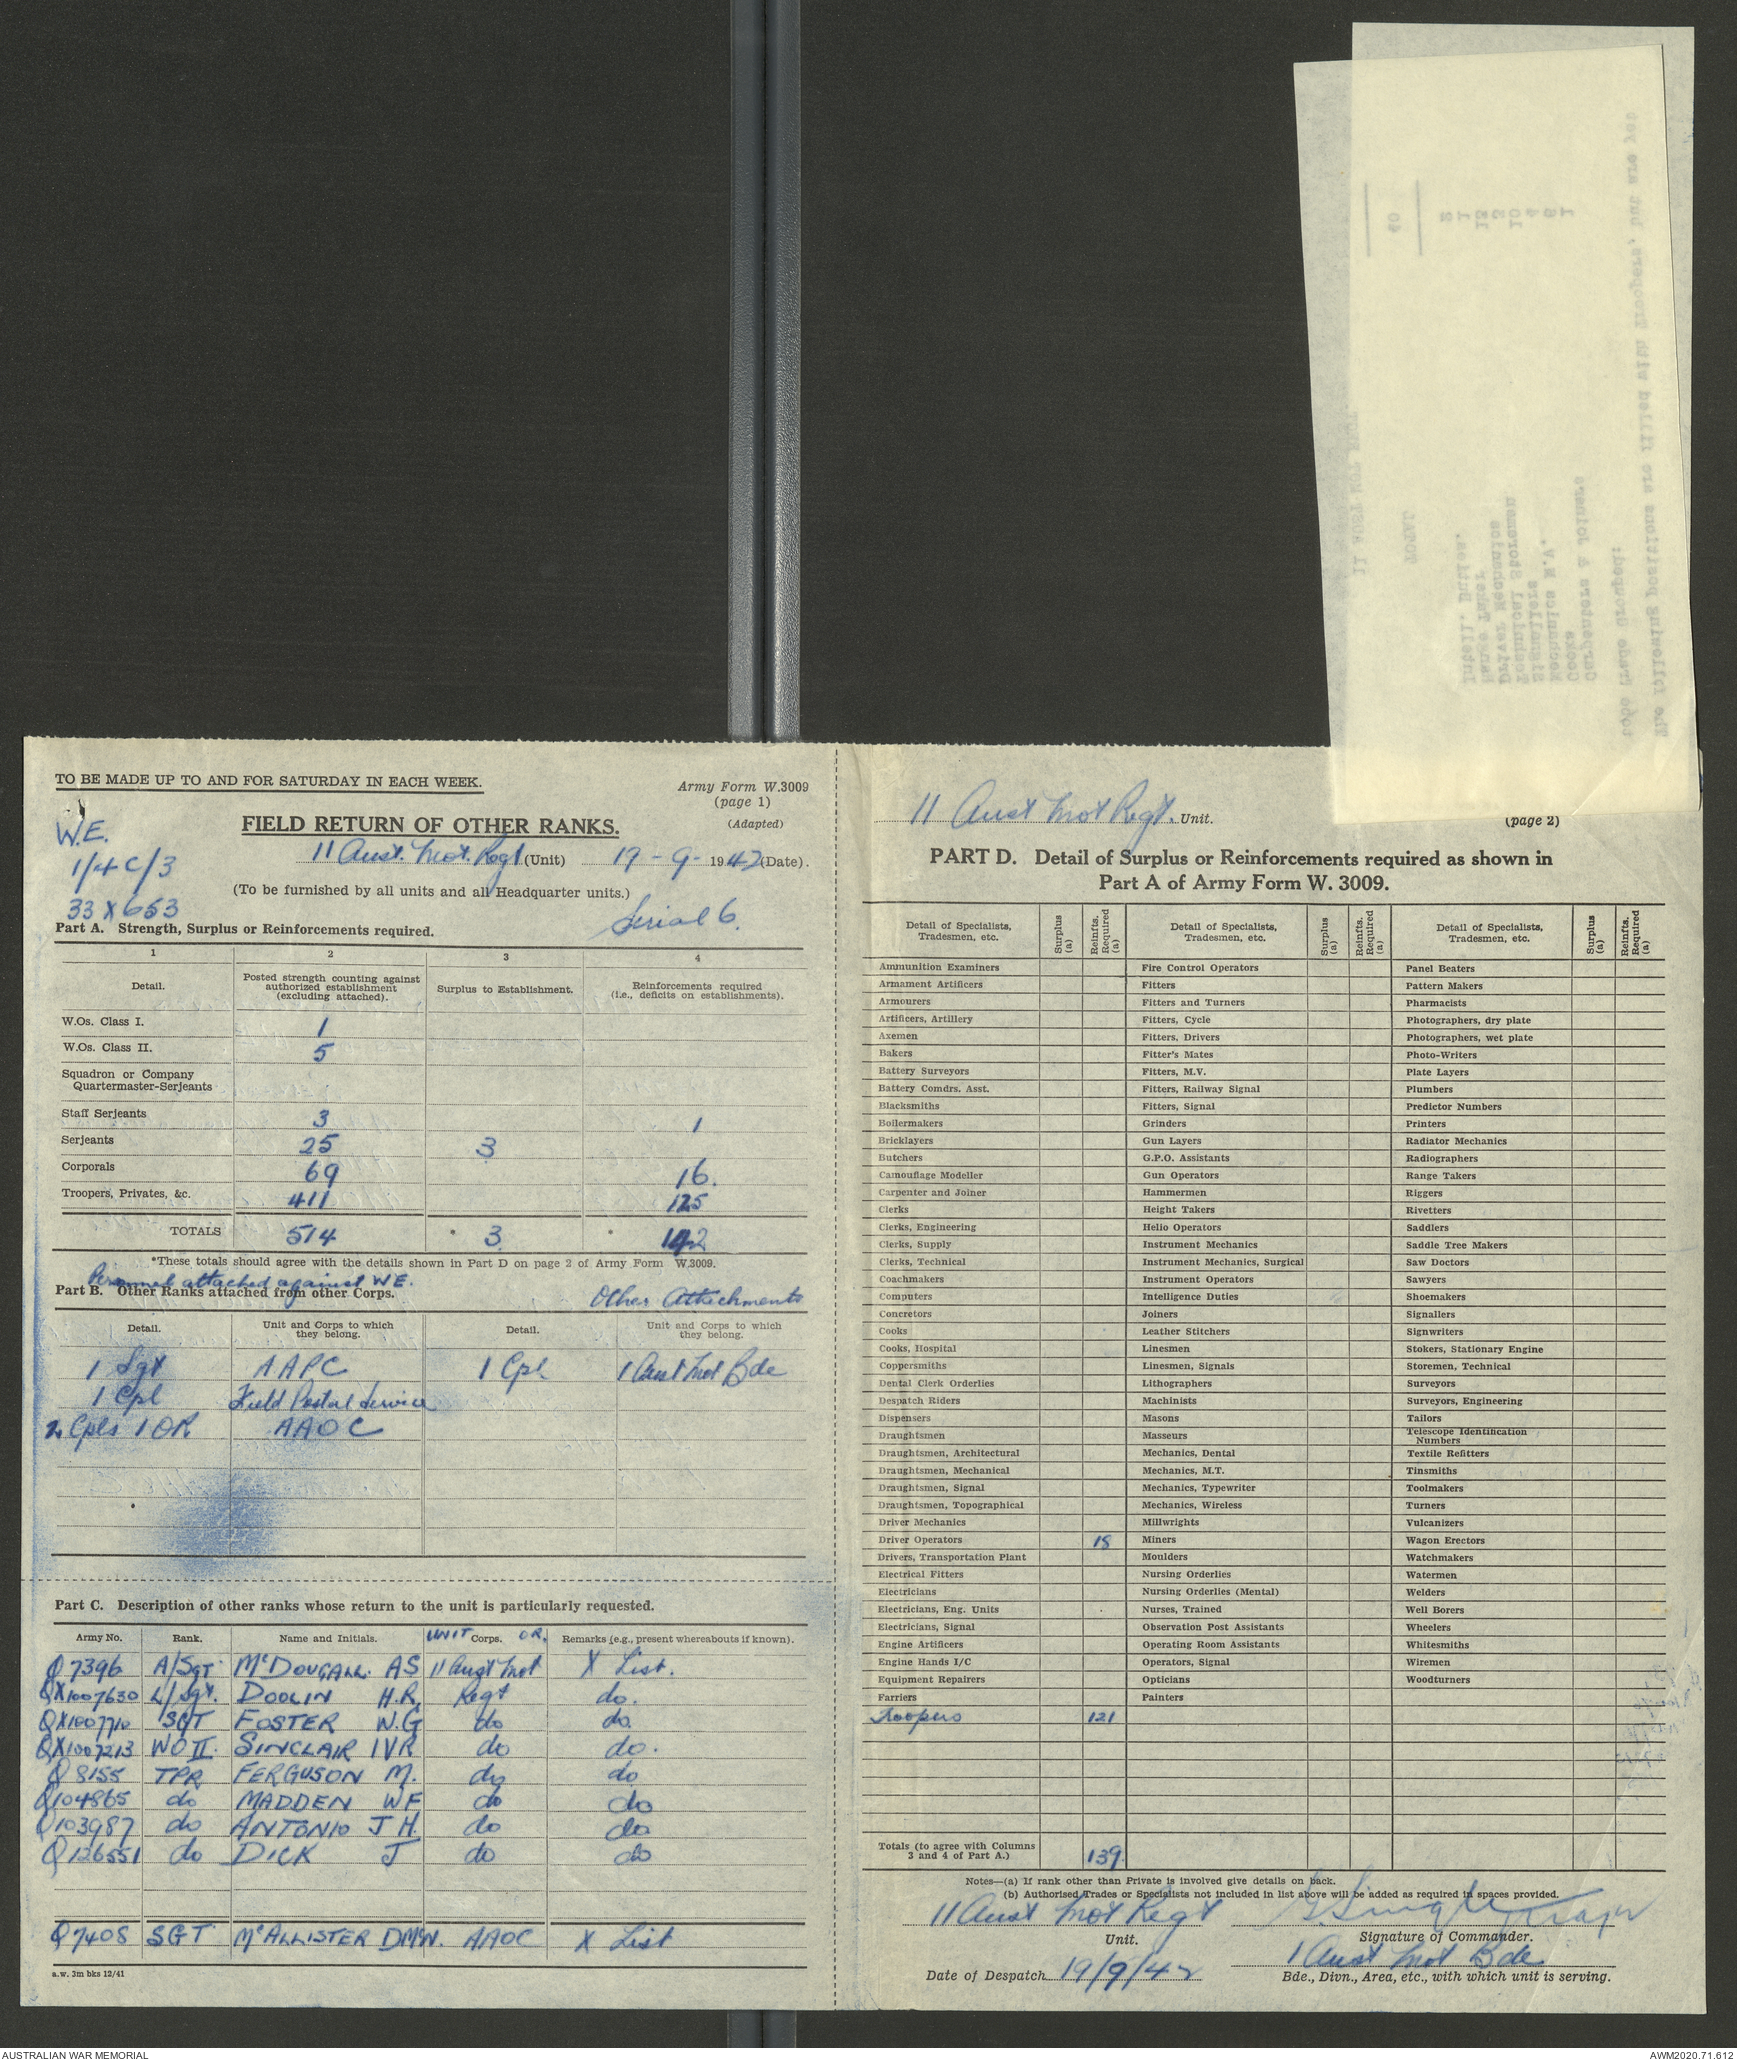 The following positions are filled with Troopers, but are yet
to be Trade Grouped:
Carpenters & Joiners 1
Cooks 6
Mechanics M.V. 4
Signallers 10
Technical Storemen 3
Driver Mechanics 13
Range Taker 1
Intell. Duties. 2
TOTAL 40
11 AUST MOT REGT.
TO BE MADE UP TO AND FOR SATURDAY IN EACH WEEK.
Army Form W.3009
(page 1)
(Adapted)
W.E.
1/4C/3
33 X 653
FIELD RETURN OF OTHER RANKS.
11 Aust. Mot. Regt (Unit) 19-9-1942 (Date).
(To be furnished by all units and all Headquarter units.)
Serial 6.
Part A. Strength, Surplus or Reinforcements required.
1 2 3 4
Detail. Posted strength counting against authorized establishment (excluding attached). Surplus to Establishment. Reinforcements required (i.e., deficits on establishments).
W.Os. Class I. 1
W.Os. Class II. 5
Squadron or Company
Quartermaster-Serjeants
Staff Serjeants 3 1
Serjeants 25 3
Corporals 69 16.
Troopers, Privates, &c. 411 125
TOTALS 514 * 3 * 142
*These totals should agree with the details shown in Part D on page 2 of Army Form W.3009.
Personnel attached against W.E.
Part B. Other Ranks attached from other Corps. Other Attachments
Detail. Unit and Corps to which they belong. Detail. Unit and Corps to which they belong.
1 Sgt AAPC 1 Cpl 1 Aust Mot Bde
1 Cpl Field Postal Service
2 Cpls 1 OR AAOC
Part C. Description of other ranks whose return to the unit is particularly requested.
Army No. Rank. Name and Initials. UNIT Corps. OR. Remarks (e.g., present whereabouts if known).
Q7396 A/Sgt McDOUGALL AS 11 Aust Mot X List.
QX1007630 L/Sgt. DOOLIN H.R. Regt do.
QX1007710 SGT FOSTER W.G do do.
QX1007213 WO II. SINCLAIR IVR do do.
Q8155 TPR FERGUSON M. do do
Q104865 do MADDEN WF do do
Q103987 do ANTONIO J H. do do
Q126551 do DICK J do do
Q7408 SGT McALLISTER DMcN. AAOC X List
a.w. 3m bks 12/41
11 Aust Mot Regt. Unit.
(page 2)
PART D. Detail of Surplus or Reinforcements required as shown in
Part A of Army Form W. 3009.
Detail of Specialists, Tradesmen, etc. Surplus (a) Reinfts. Required (a) Detail of Specialists, Tradesmen, etc. Surplus (a) Reinfts. Required (a) Detail of Specialists, Tradesmen, etc. Surplus (a) Reinfts. Required (a)
Ammunition Examiners Fire Control Operators Panel Beaters
Armament Artificers Fitters Pattern Makers
Armourers Fitters and Turners Pharmacists
Artificers, Artillery Fitters, Cycle Photographers, dry plate
Axemen Fitters, Drivers Photographers, wet plate
Bakers Fitter's Mates Photo-Writers
Battery Surveyors Fitters, M.V. Plate Layers
Battery Comdrs. Asst. Fitters, Railway Signal Plumbers
Blacksmiths Fitters, Signal Predictor Numbers
Boilermakers Grinders Printers
Bricklayers Gun Layers Radiator Mechanics
Butchers G.P.O. Assistants Radiographers
Camouflage Modeller Gun Operators Range Takers
Carpenter and Joiner Hammermen Riggers
Clerks Height Takers Rivetters
Clerks, Engineering Helio Operators Saddlers
Clerks, Supply Instrument Mechanics Saddle Tree Makers
Clerks, Technical Instrument Mechanics, Surgical Saw Doctors
Coachmakers Instrument Operators Sawyers
Computers Intelligence Duties Shoemakers
Concretors Joiners Signallers
Cooks Leather Stitchers Signwriters
Cooks, Hospital Linesmen Stokers, Stationary Engine
Coppersmiths Linesmen, Signals Storemen, Technical
Dental Clerk Orderlies Lithographers Surveyors
Despatch Riders Machinists Surveyors, Engineering
Dispensers Masons Tailors
Draughtsmen Masseurs Telescope Identification Numbers
Draughtsmen, Architectural Mechanics, Dental Textile Refitters
Draughtsmen, Mechanical Mechanics, M.T. Tinsmiths
Draughtsmen, Signal Mechanics, Typewriter Toolmakers
Draughtsmen, Topographical Mechanics, Wireless Turners
Driver Mechanics Millwrights Vulcanizers
Driver Operators 18 Miners Wagon Erectors
Drivers, Transportation Plant Moulders Watchmakers
Electrical Fitters Nursing Orderlies Watermen
Electricians Nursing Orderlies (Mental) Welders
Electricians, Eng. Units Nurses, Trained Well Borers
Electricians, Signal Observation Post Assistants Wheelers
Engine Artificers Operating Room Assistants Whitesmiths
Engine Hands I/C Operators, Signal Wiremen
Equipment Repairers Opticians Woodturners
Farriers Painters
Troopers 121
Totals (to agree with Columns 3 and 4 of Part A.) 139
Notes—(a) If rank other than Private is involved give details on back.
(b) Authorised Trades or Specialists not included in list above will be added as required in spaces provided.
11 Aust Mot Regt
Unit.
Signature of Commander.
Date of Despatch 19/9/42
1 Aust Mot Bde
Bde., Divn., Area, etc., with which unit is serving.
AUSTRALIAN WAR MEMORIAL
AWM2020.71.612